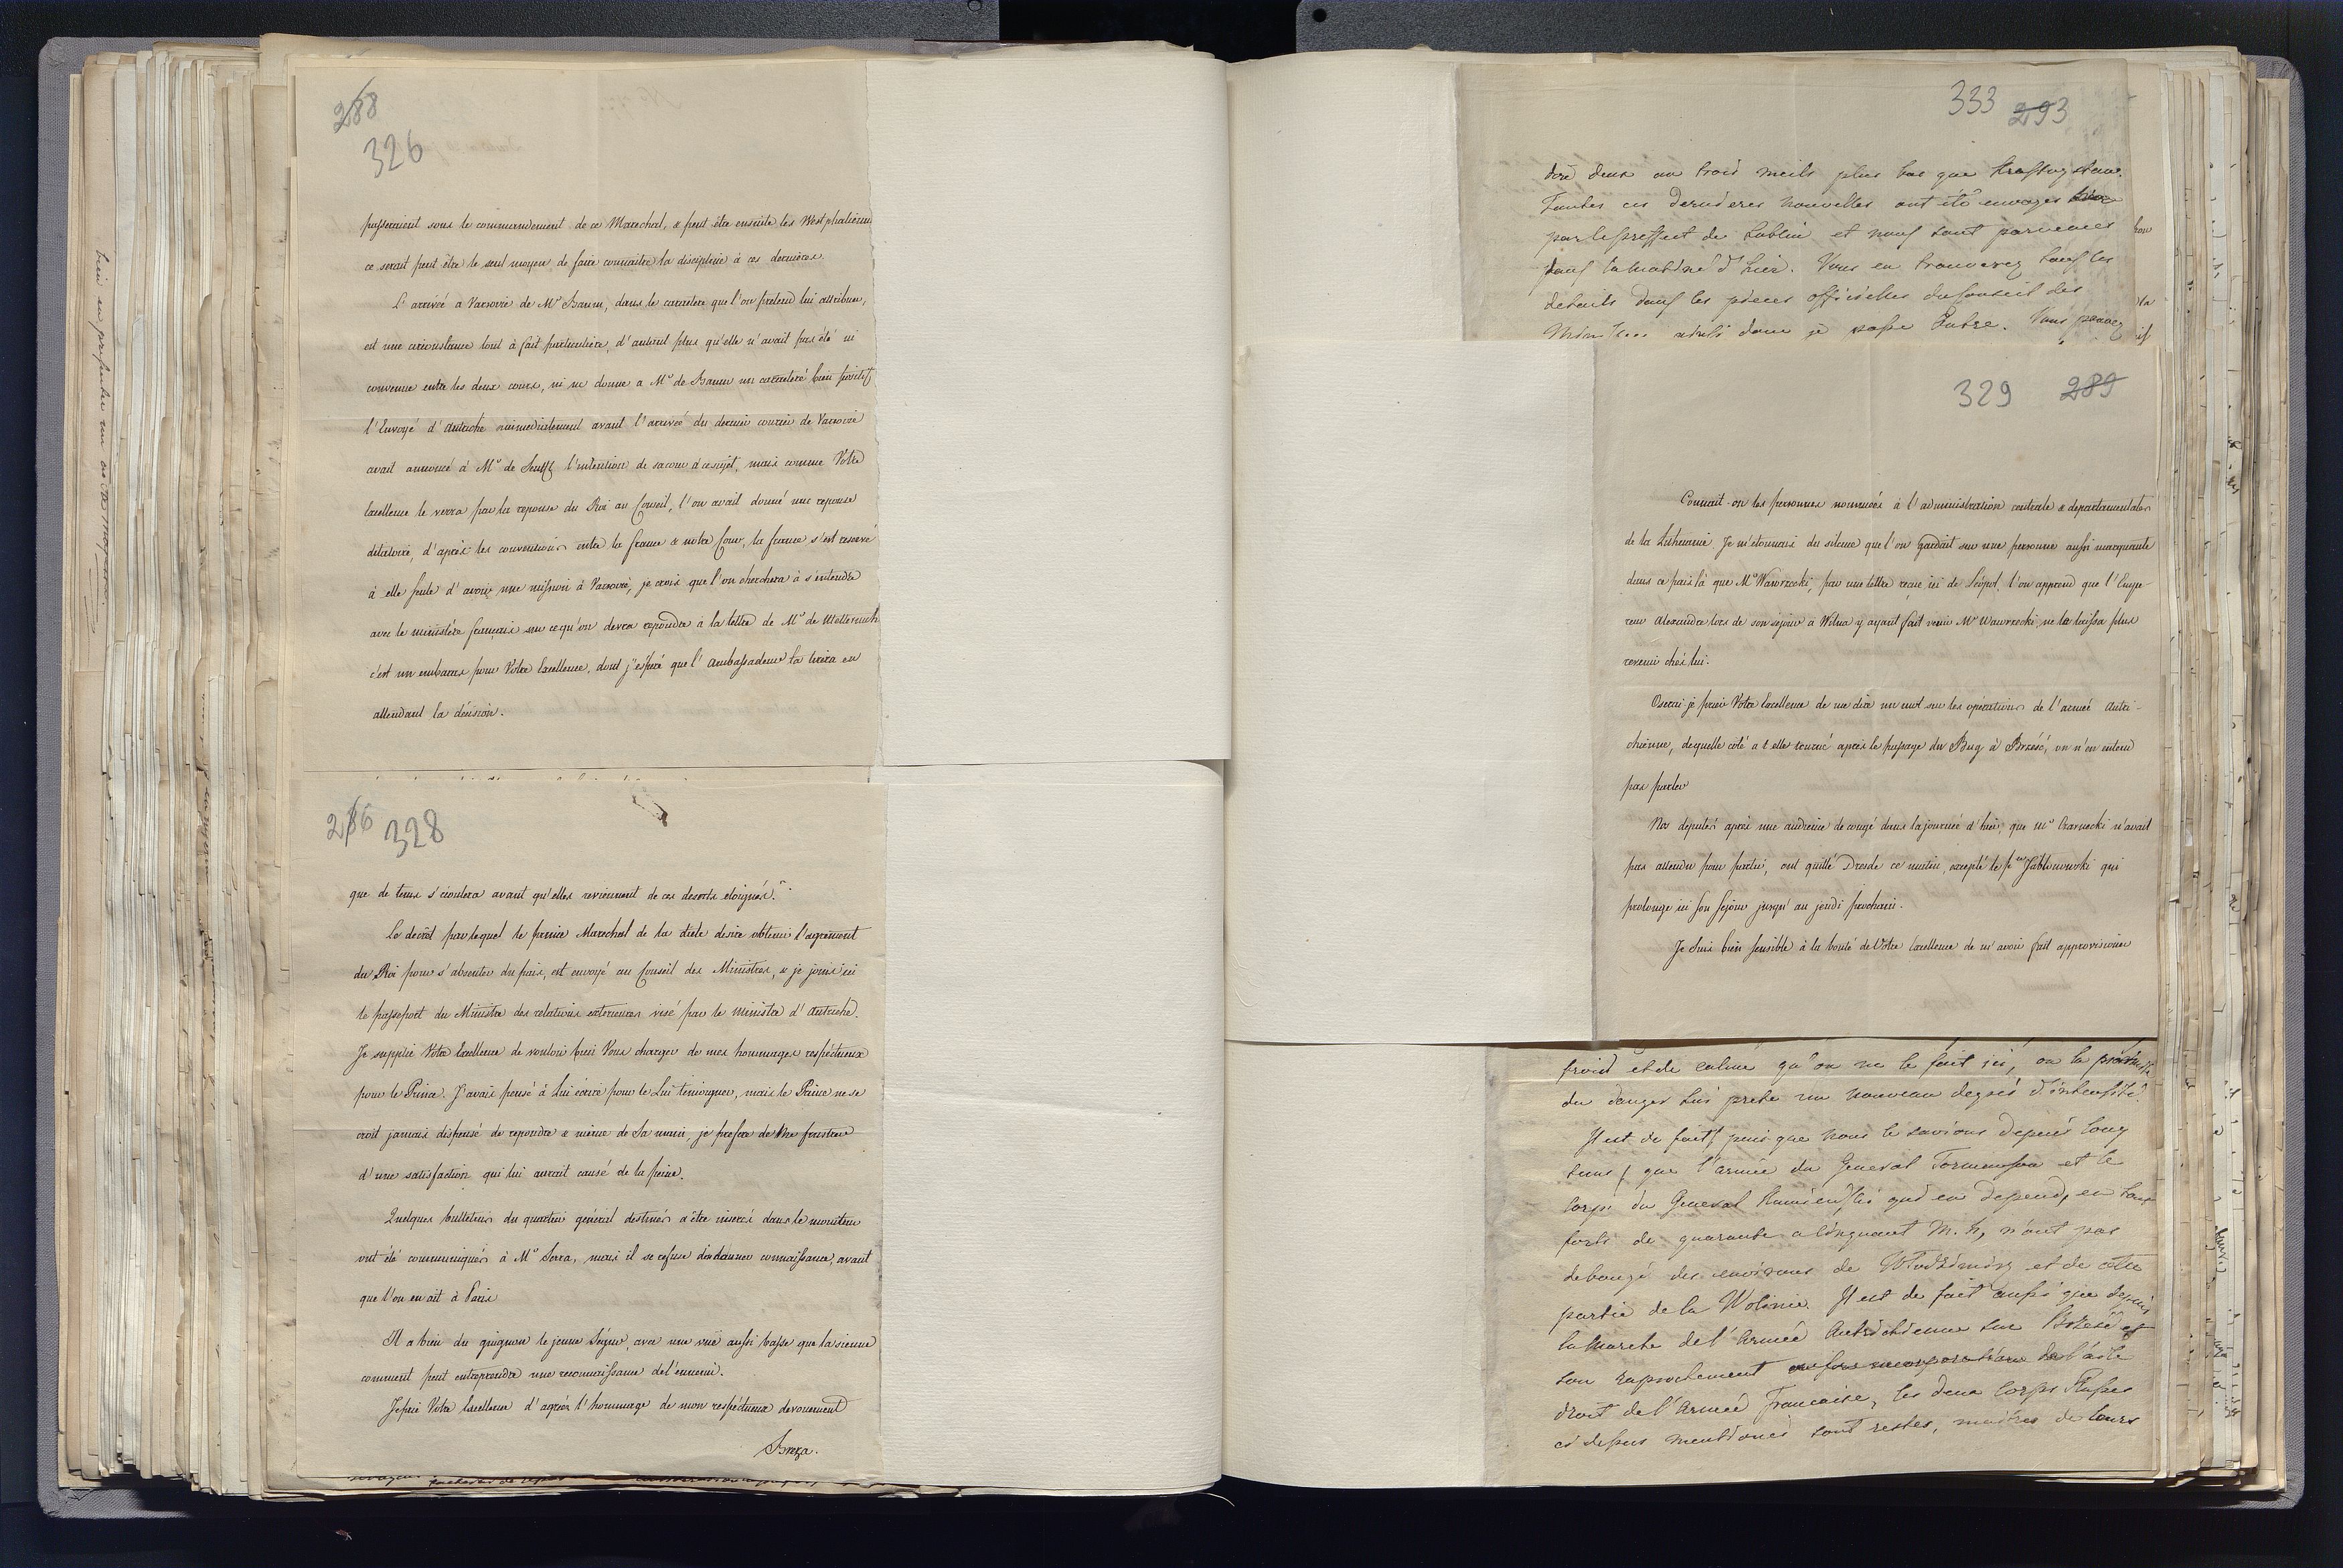 288
326
passeraient sous le commandement de ce Marechal, & peut être ensuite les Westphaliens
ce serait peut être le seul moyen de faire connaitre la discipline à ces dernieres.
L'arrivée a Varsovie de Mr Baum, dans le caractere que l'on pretend lui attribuer,
est une circonstance tout à fait particulière, d'autant plus qu'elle n'avait pas été ni
convenue entre les deux cours, ni ne donne a Mr de Baum un caracteré bien positif,
l'Envoyé d'Autriche immediatement avant l'arrivée du dernier courier de Varsovie
avait annoncé à Mr de Senfft l'intention de sa cour à ce sujet, mais comme Votre
Excellence le verra par la reponse du Roi au Conseil, l'on avait donné une reponse
dilatoire, d'après les conventions entre la france & notre Cour, la france s'est reservé
à elle seule d'avoir une mission à Varsovie, je crois que l'on cherchera à s'entendre
avec le ministére français sur ce qu'on devra repondre à la lettre de Mr de Metternich
c'est un embarras pour Votre Excellence, dont j'espere que l'Ambassadeur la tirera en
attendant la décision.
286 328
que de tems s'écoulera avant qu'elles reviennent de ces deserts eloignés.
Le decrèt par lequel le prince Marechal de la diète desire obtenir l'agrément
du Roi pour s'absenter du païs, est envoyé au Conseil des Ministres, & je joins ici
le passeport du Ministre des relations exterieures visé par le ministre d'Autriche.
Je supplie Votre Excellence de vouloir bien Vous charger de mes hommages respéctueux
pour le Prince. J'avais pensé à Lui écrire pour le Lui temoigner, mais le Prince ne se
croit jamais dispensé de repondre & même de Sa main, je prefere de me frustrer
d'une satisfaction qui lui aurait causé de la peine.
Quelques bulletins du quartier général destinés à être inserés dans le moniteur
ont été communiqués à Mr Serra, mais il se refuse d'en donner connaissance, avant
que l'on en ait à Paris
Il a bien du guignon le jeune Ségur, avec une vuë aussi basse que la sienne
comment peut entreprendre une reconnaissance de l'ennemi.
Je prie Votre Excellence d'agréer l'hommage de mon respéctueux devouement
Breza.
333 293
deux ou trois meils plus bas que
Toutes ces dernieres nouvelles ont été envoyes
par le preffect de Lublin et nous sont parvenues
dans la matiné d'hier. Vous en trouverez tous les
details dans les pieces officielles du Conseil des
Ministres ainsi donc je passe outre. Vous pouvez
329 289
Connait-on les personnes nommées à l'administration centrale & departamentales
de la Lithuanie Je m'etonnais du silence que l'on gardait sur une personne aussi marquante
dans ce païs là que Mr Wawrzecki, par une lettre reçue ici de Léopol, l'on apprend que l'Empe-
reur Alexandre lors de son séjour à Wilna y ayant fait venir Mr Wawrzecki, ne le laissa plus
revenir chés lui.
Oserai je prier Votre Excellence de me dire un mot sur les opérations de l'armée Autri-
chienne, de quelle côté a t elle tourné après le passage du Bug à Brzesć, on n'en entend
pas parler
Nos deputés après une audience de congé dans la journée d'hier, que Mr Czarnecki n'avait
pas attendu pour partir, ont quitté Dresde ce matin, excepté le pce Jabłonowski qui
prolonge ici son sejour jusqu'au jeudi prochain.
Je suis bien sensible à la bonté de Votre Excellence de m'avoir fait approvisionner
froid et de calme qu'on ne le fait ici, ou la
du danger lui prete un nouveau degrés d'intensité.
Il est de fait (puis que nous le savions depuis long
tems) que l'armée du General Tormansow et le
Corps du General Kamienski qui en depend, en tout
forts de quarante a cinquant m. h, n'ont pas
debougé des environs de Włodzimirz et de cette
partie de la Wolinie. Il est de fait aussi que depuis
la marche de l'Armée Autrichienne sur Brzesć et
son raprochement de l'aile
droit de l'Armée Francaise, les deux Corps Russes
ci dessus mentionés sont restés, maitres de leurs